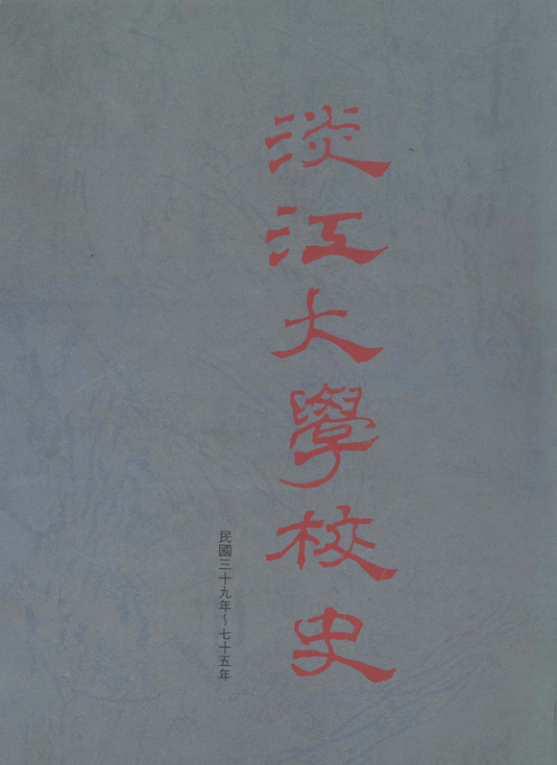 淡江大學校史
民國三十九年~七十五年